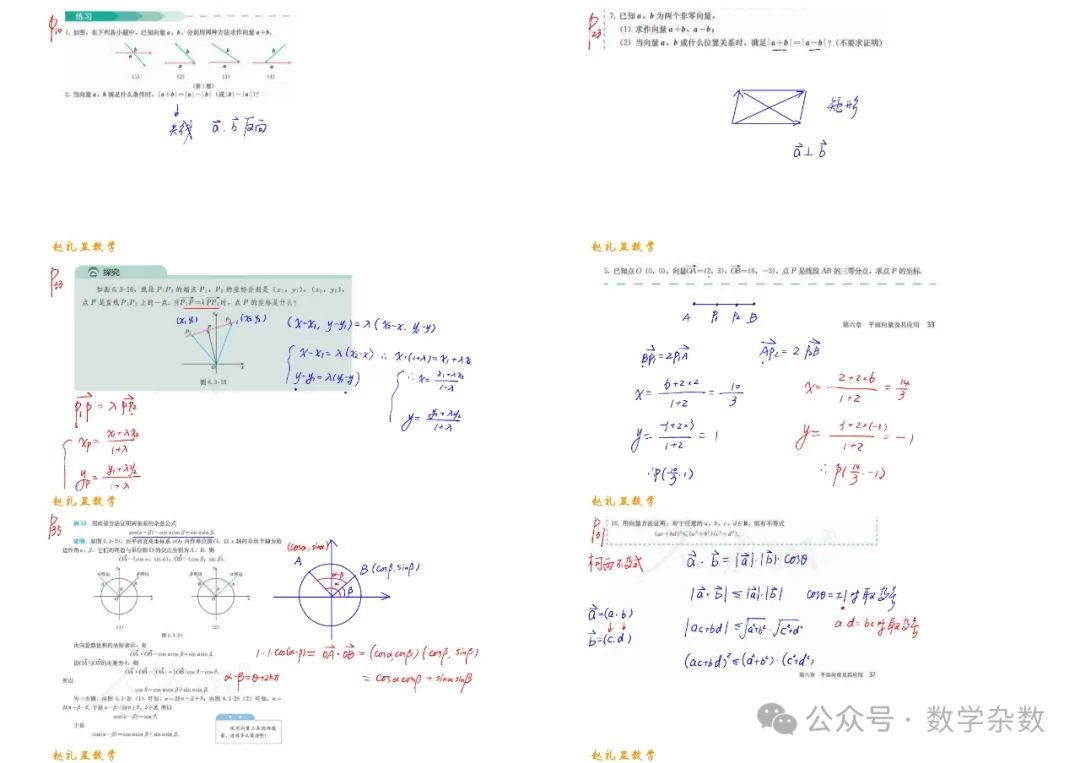 P10
练习
1. 如图，在下列各小题中，已知向量a，b，分别用两种方法求作向量a+b.
b
a
b
a
b
a
b
a
(1)
(2)
(3)
(4)
(第1题)
2. 当向量a，b满足什么条件时，|a+b|=|a|-|b|（或|b|-|a|）?
共线 a⃗. b⃗ 反向
赵礼显数学
P23
7. 已知a，b为两个非零向量，
(1) 求作向量a+b，a-b；
(2) 当向量a，b成什么位置关系时，满足|a+b|=|a-b|？(不要求证明)
矩形
a⃗⊥b⃗
赵礼显数学
P33
探究
如图6.3-16，线段P₁P₂的端点P₁，P₂的坐标分别是(x₁，y₁)，(x₂，y₂)，
点P是直线P₁P₂上的一点. 当P₁P=λPP₂时，点P的坐标是什么？
(x₁,y₁)
(x₂,y₂)
图6.3-16
(x-x₁, y-y₁)=λ(x₂-x, y₂-y)
x-x₁=λ(x₂-x) ∴ x·(1+λ)=x₁+λx₂
y-y₁=λ(y₂-y)
∴ x=(x₁+λx₂)/(1+λ)
y=(y₁+λy₂)/(1+λ)
P₁P=λPP₂
xp=(x₁+λx₂)/(1+λ)
yp=(y₁+λy₂)/(1+λ)
赵礼显数学
5. 已知点O(0，0)，向量OA=(2，3)，OB=(6，-3)，点P是线段AB的三等分点，求点P的坐标.
A P₁ P₂ B
第六章 平面向量及其应用 33
BP₁=2P₁A
AP₂=2P₂B
x=(6+2×2)/(1+2)=10/3
x=(2+2×6)/(1+2)=14/3
y=(-3+2×3)/(1+2)=1
y=(3+2×(-3))/(1+2)=-1
∴P(10/3,1)
∴P(14/3,-1)
赵礼显数学
P35
例12 用向量方法证明两角差的余弦公式
cos(α-β)=cos αcos β+sin αsin β.
证明：如图6.3-20，在平面直角坐标系xOy内作单位圆O，以x轴的非负半轴为始
边作角α，β，它们的终边与单位圆O的交点分别为A，B. 则
OA=(cos α，sin α)，OB=(cos β，sin β).
α终边
β终边
β终边
α终边
(1)
(2)
图6.3-20
(cosα,sinα)
A
B(cosβ,sinβ)
α-β
α
β
由向量数量积的坐标表示，有
OA·OB=cos αcos β+sin αsin β.
设OA与OB的夹角为θ，则
OA·OB=|OA|·|OB|cos θ=cos θ.
所以
cos θ=cos αcos β+sin αsin β.
另一方面，由图6.3-20(1)可知，α=2kπ+β+θ；由图6.3-20(2)可知，α=
2kπ+β-θ. 于是α-β=2kπ±θ，k∈Z. 所以
cos(α-β)=cos θ.
于是
cos(α-β)=cos αcos β+sin αsin β.
1·1·cos(α-β)=OA·OB=(cosαcosβ)(cosβ,sinβ)
α-β=θ+2kπ
=cosαcosβ+sinαsinβ
赵礼显数学
P37
16. 用向量方法证明：对于任意的a，b，c，d∈R，恒有不等式
(ac+bd)²≤(a²+b²)(c²+d²).
柯西不等式
a⃗·b⃗=|a⃗|·|b⃗|·cosθ
|a⃗·b⃗|≤|a⃗|·|b⃗|
cosθ=±1时取等号
a⃗=(a,b)
b⃗=(c,d)
|ac+bd|≤√(a²+b²)·√(c²+d²)
ad=bc时取等号
(ac+bd)²≤(a²+b²)·(c²+d²)
第六章 平面向量及其应用 37
赵礼显数学
公众号·数学杂数